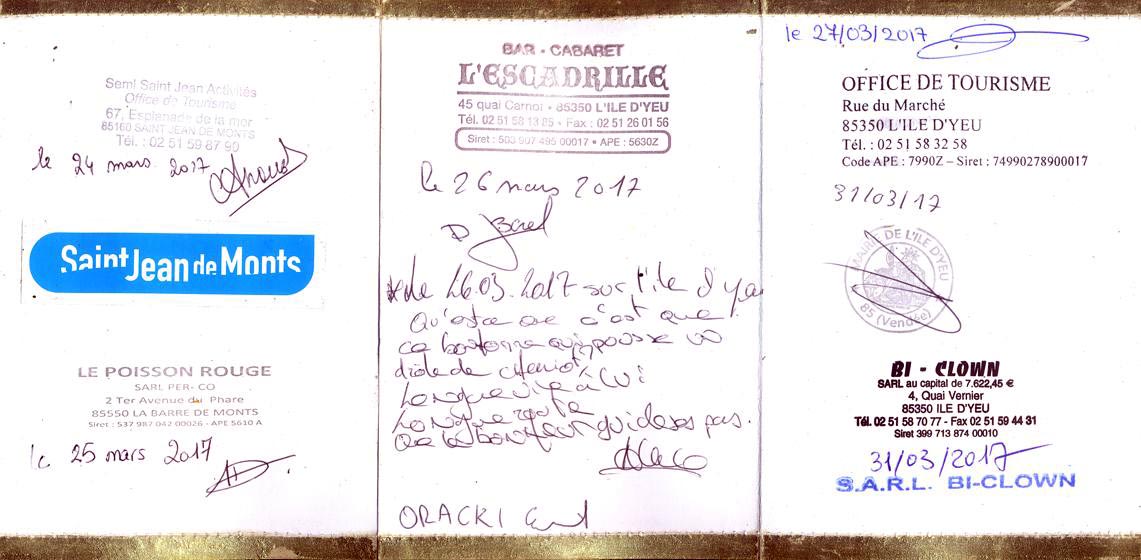 Semi Saint Jean Activités
Office de Tourisme
67, Esplanade de la mer
85160 SAINT JEAN DE MONTS
Tél. : 02 51 59 87 90
le 24 mars 2017
Saint Jean de Monts
LE POISSON ROUGE
SARL PER- CO
2 Ter Avenue du Phare
85550 LA BARRE DE MONTS
Siret : 537 987 042 00026 - APE 5610 A
le 25 mars 2017
BAR - CABARET
L'ESCADRILLE
45 quai Carnot • 85350 L'ILE D'YEU
Tél. 02 51 58 13 85 • Fax : 02 51 26 01 56
Siret : 503 907 495 00017 • APE : 5630Z
le 26 mars 2017
le 26.03.2017 sur l'ile d'yeu
Qu'est ce que c'est que
ce bonhomme qui pousse un
drôle de chariot
Longue vie à lui
Longue route
Que le bonheur guide ses pas.
ORACKI
le 27/03/2017
OFFICE DE TOURISME
Rue du Marché
85350 L'ILE D'YEU
Tél. : 02 51 58 32 58
Code APE : 7990Z – Siret : 74990278900017
31/03/17
MAIRIE DE L'ILE D'YEU
85 (Vendée)
BI - CLOWN
SARL au capital de 7.622,45 €
4, Quai Vernier
85350 ILE D'YEU
Tél. 02 51 58 70 77 - Fax 02 51 59 44 31
Siret 399 713 874 00010
31/03/2017
S.A.R.L. BI-CLOWN